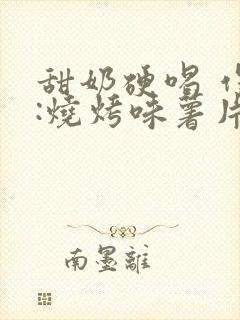 甜奶硬唱
:燒烤味薯片
南墨離